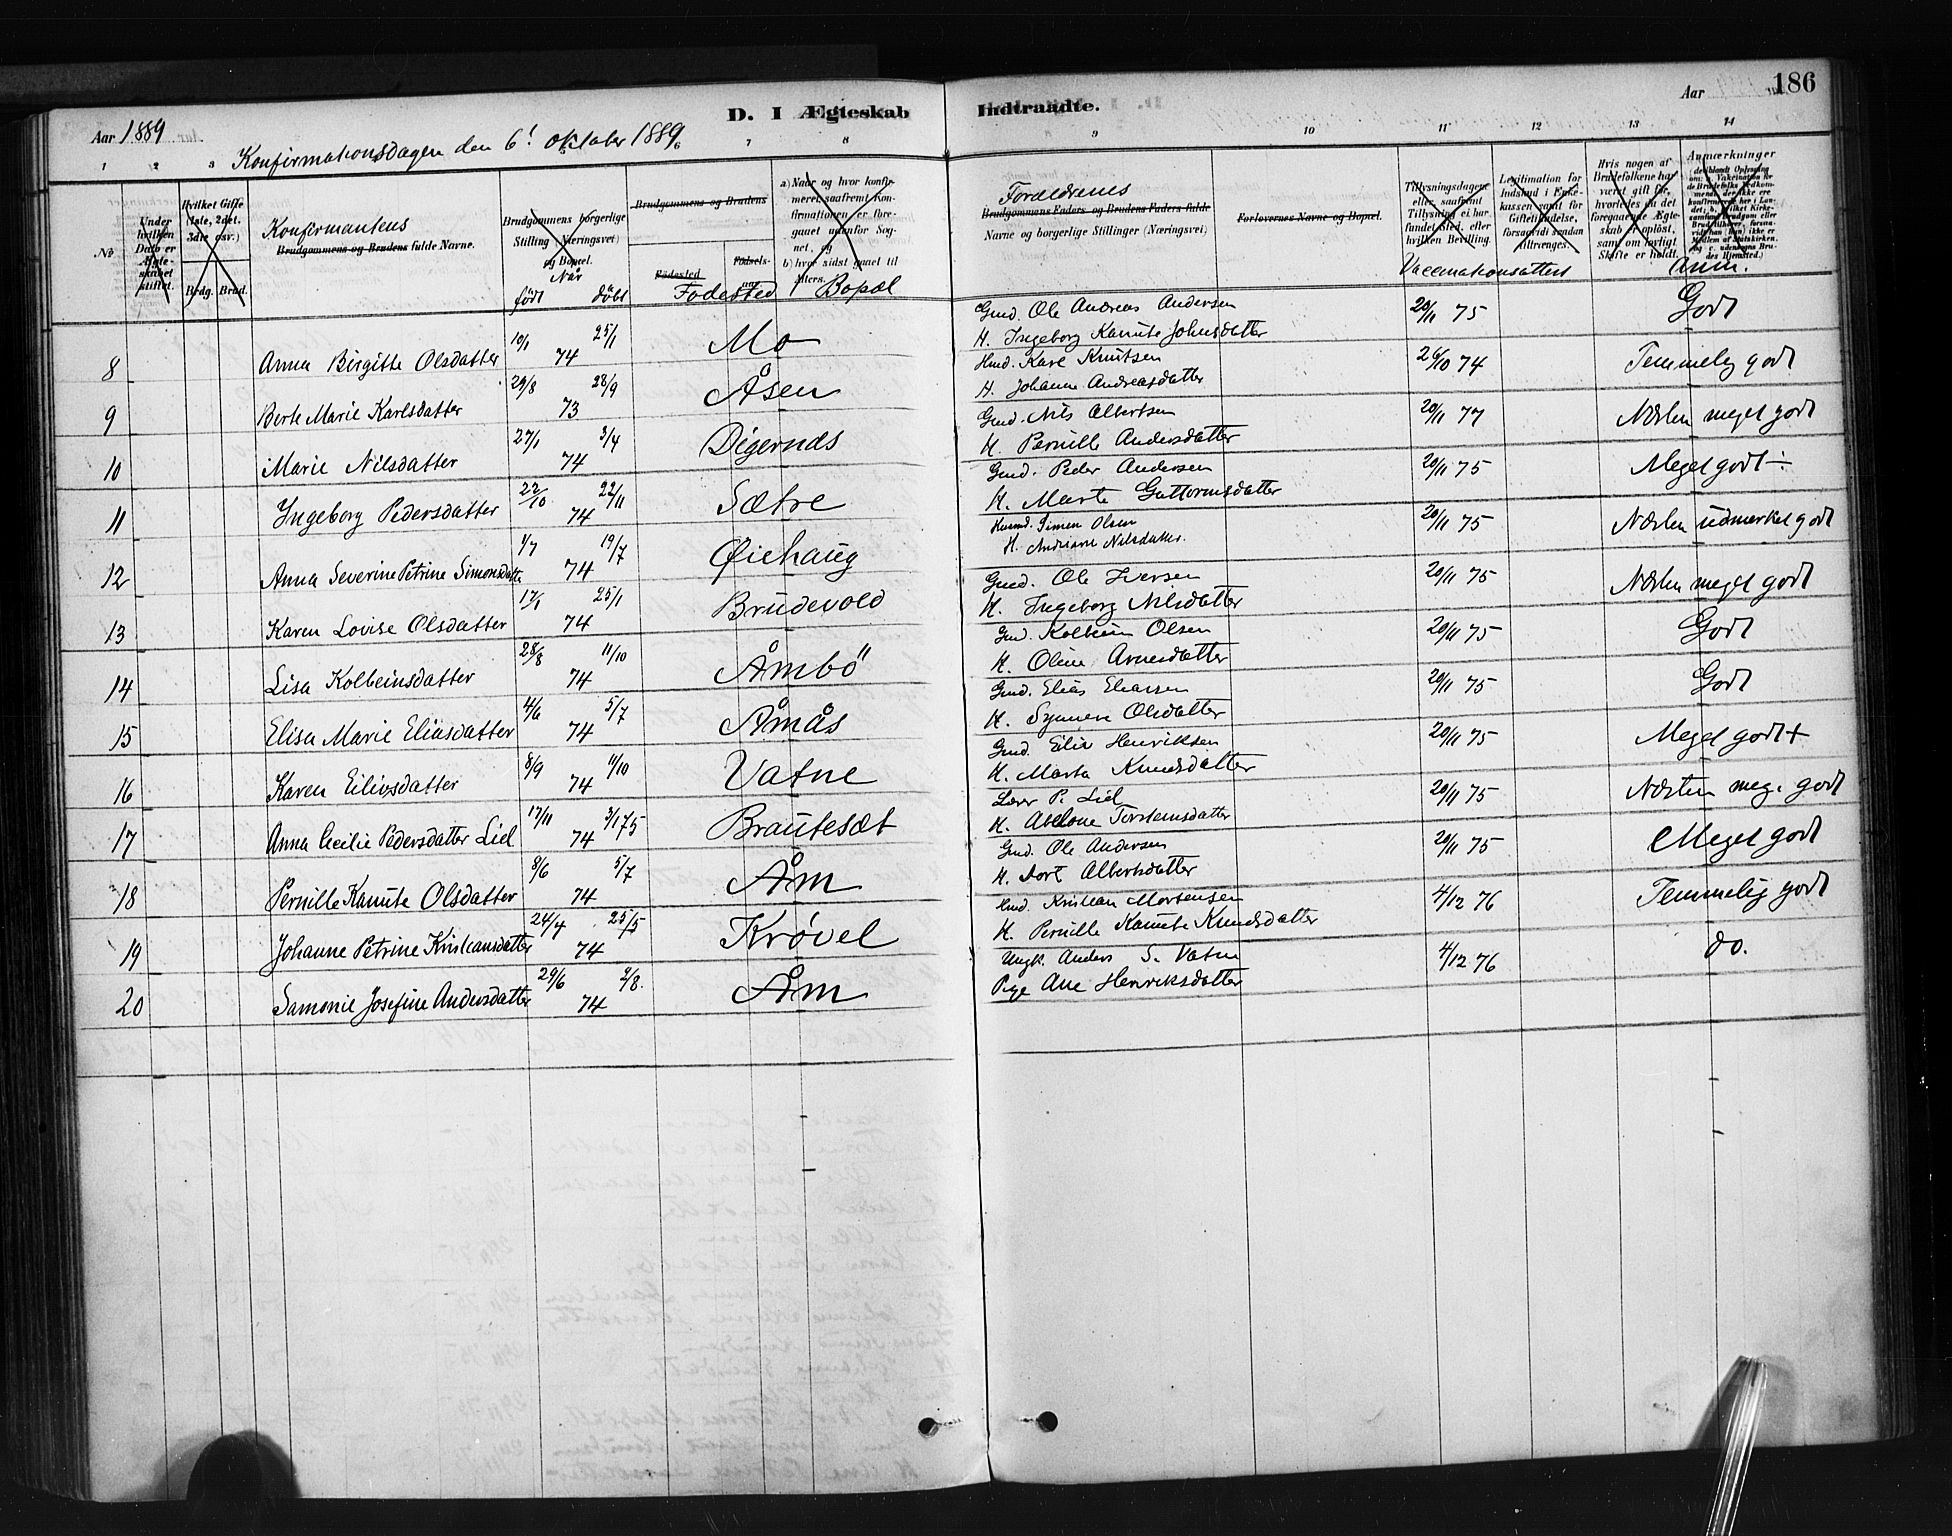 186
D. I Ægteskab Indtraadte.
Aar 1889 Aar
Konfirmationsdagen den 6! oktober 1889
1 2 3 6 7 8 9 10 11 12 13 14
No
Under hvilken Dato er Ægteskabet stiftet.
Hvilket Gifte (1ste, 2det, 3die osv.)
Brdg. Brud.
Konfirmantens
Brudgommens og Brudens fulde Navne.
Brudgommens borgerlige Stilling (Næringsvei) og Bopæl.
Når
født döbt
Brudgommens og Brudens
Fødested
Fødselsaar
Fodested
a) Naar og hvor konfirmeret, saafremt Konfirmationen er foregaaet udenfor Sognet, og
b) hvor sidst gaaet til Alters.
Bopæl
Foreldrenes
Brudgommens Faders og Brudens Faders fulde Navne og borgerlige Stillinger (Næringsvei)
Forlovernes Navne og Bopæl.
Tillysningsdagene eller, saafremt Tillysning ei har fundet Sted, efter hvilken Bevilling.
Vaccinationsattest
Legitimation for Indskud i Enkekassen samt for Giftetilladelse, forsaavidt saadan tiltrænges.
Hvis nogen af Brudefolkene har været gift før, hvorledes da det foregaaende Ægteskab er opløst, samt om lovligt Skifte er holdt.
Anmærkninger
Anm.
8 Anna Birgitte Olsdatter 10/1 25/1 74 Mo Gmd. Ole Andreas Andersen 20/11 75 Godt
H. Ingeborg Kanute Johnsdatter
9 Berte Marie Karlsdatter 29/8 28/9 73 Åsen Hmd. Karl Knutsen 26/10 74 Temmelig godt
H. Johanne Andreasdatter
10 Marie Nilsdatter 27/1 3/4 74 Digernæs Gmd. Nils Albertsen 20/11 77 Næsten meget godt
H. Pernille Andersdatter
11 Ingeborg Pedersdatter 22/10 22/11 74 Sætre Gmd. Peder Andersen 20/11 75 Meget godt ÷
H. Marte Guttormsdatter
12 Anna Severine Petrine Simonsdatter 1/7 19/7 74 Øiehaug Husmd. Simen Olsen 20/11 75 Næsten udmerket godt
H. Andriane Nilsdatter.
13 Karen Lovise Olsdatter 17/1 25/1 74 Brudevold Gmd. Ole Iversen 20/11 75 Næsten meget godt
H. Ingeborg Nilsdatter
14 Lisa Kolbeinsdatter 28/8 11/10 74 Åmbö Gmd. Kolbein Olsen 20/11 75 Godt
H. Oline Arnesdatter
15 Elisa Marie Eliasdatter 4/6 5/7 74 Åmås Gmd. Elias Eliassen 20/11 75 Godt
H. Synneve Olsdatter
16 Karen Eilivsdatter 8/9 11/10 74 Vatne Gmd. Eiliv Henriksen 20/11 75 Meget godt +
H. Marta Knudsdatter
17 Anna Cecilie Pedersdatter Liel 17/11 74 3/1 75 Brautesæt Lærer P. Liel 20/11 75 Næsten meg. godt
H. Abelone Torsteinsdatter
18 Pernille Kanute Olsdatter 8/6 5/7 74 Åm Gmd. Ole Andersen 20/11 75 Meget godt
H. Dort Albertsdatter
19 Johanne Petrine Kristiansdatter 24/4 25/5 74 Krøvel Hmd. Kristian Mortensen 4/12 76 Temmelig godt
H. Pernille Kanute Knudsdatter
20 Samonie Josefine Andersdatter 29/6 2/8 74 Åm Ungk. Anders S. Vatne 4/12 76 do.
Pige Ane Henriksdatter